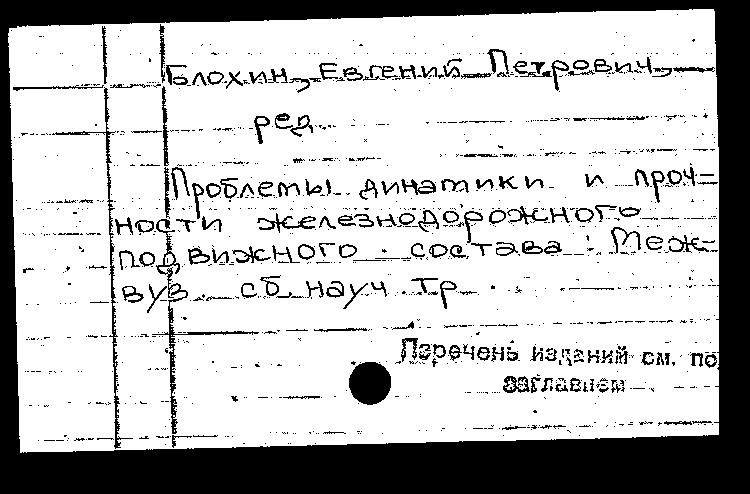 Блохин, Евгений Петрович,
ред.
Проблемы динамики и проч=
ности железнодорожного
подвижного состава : Меж-
вуз. сб. науч. тр.
Перечень изданий см. по
заглавием